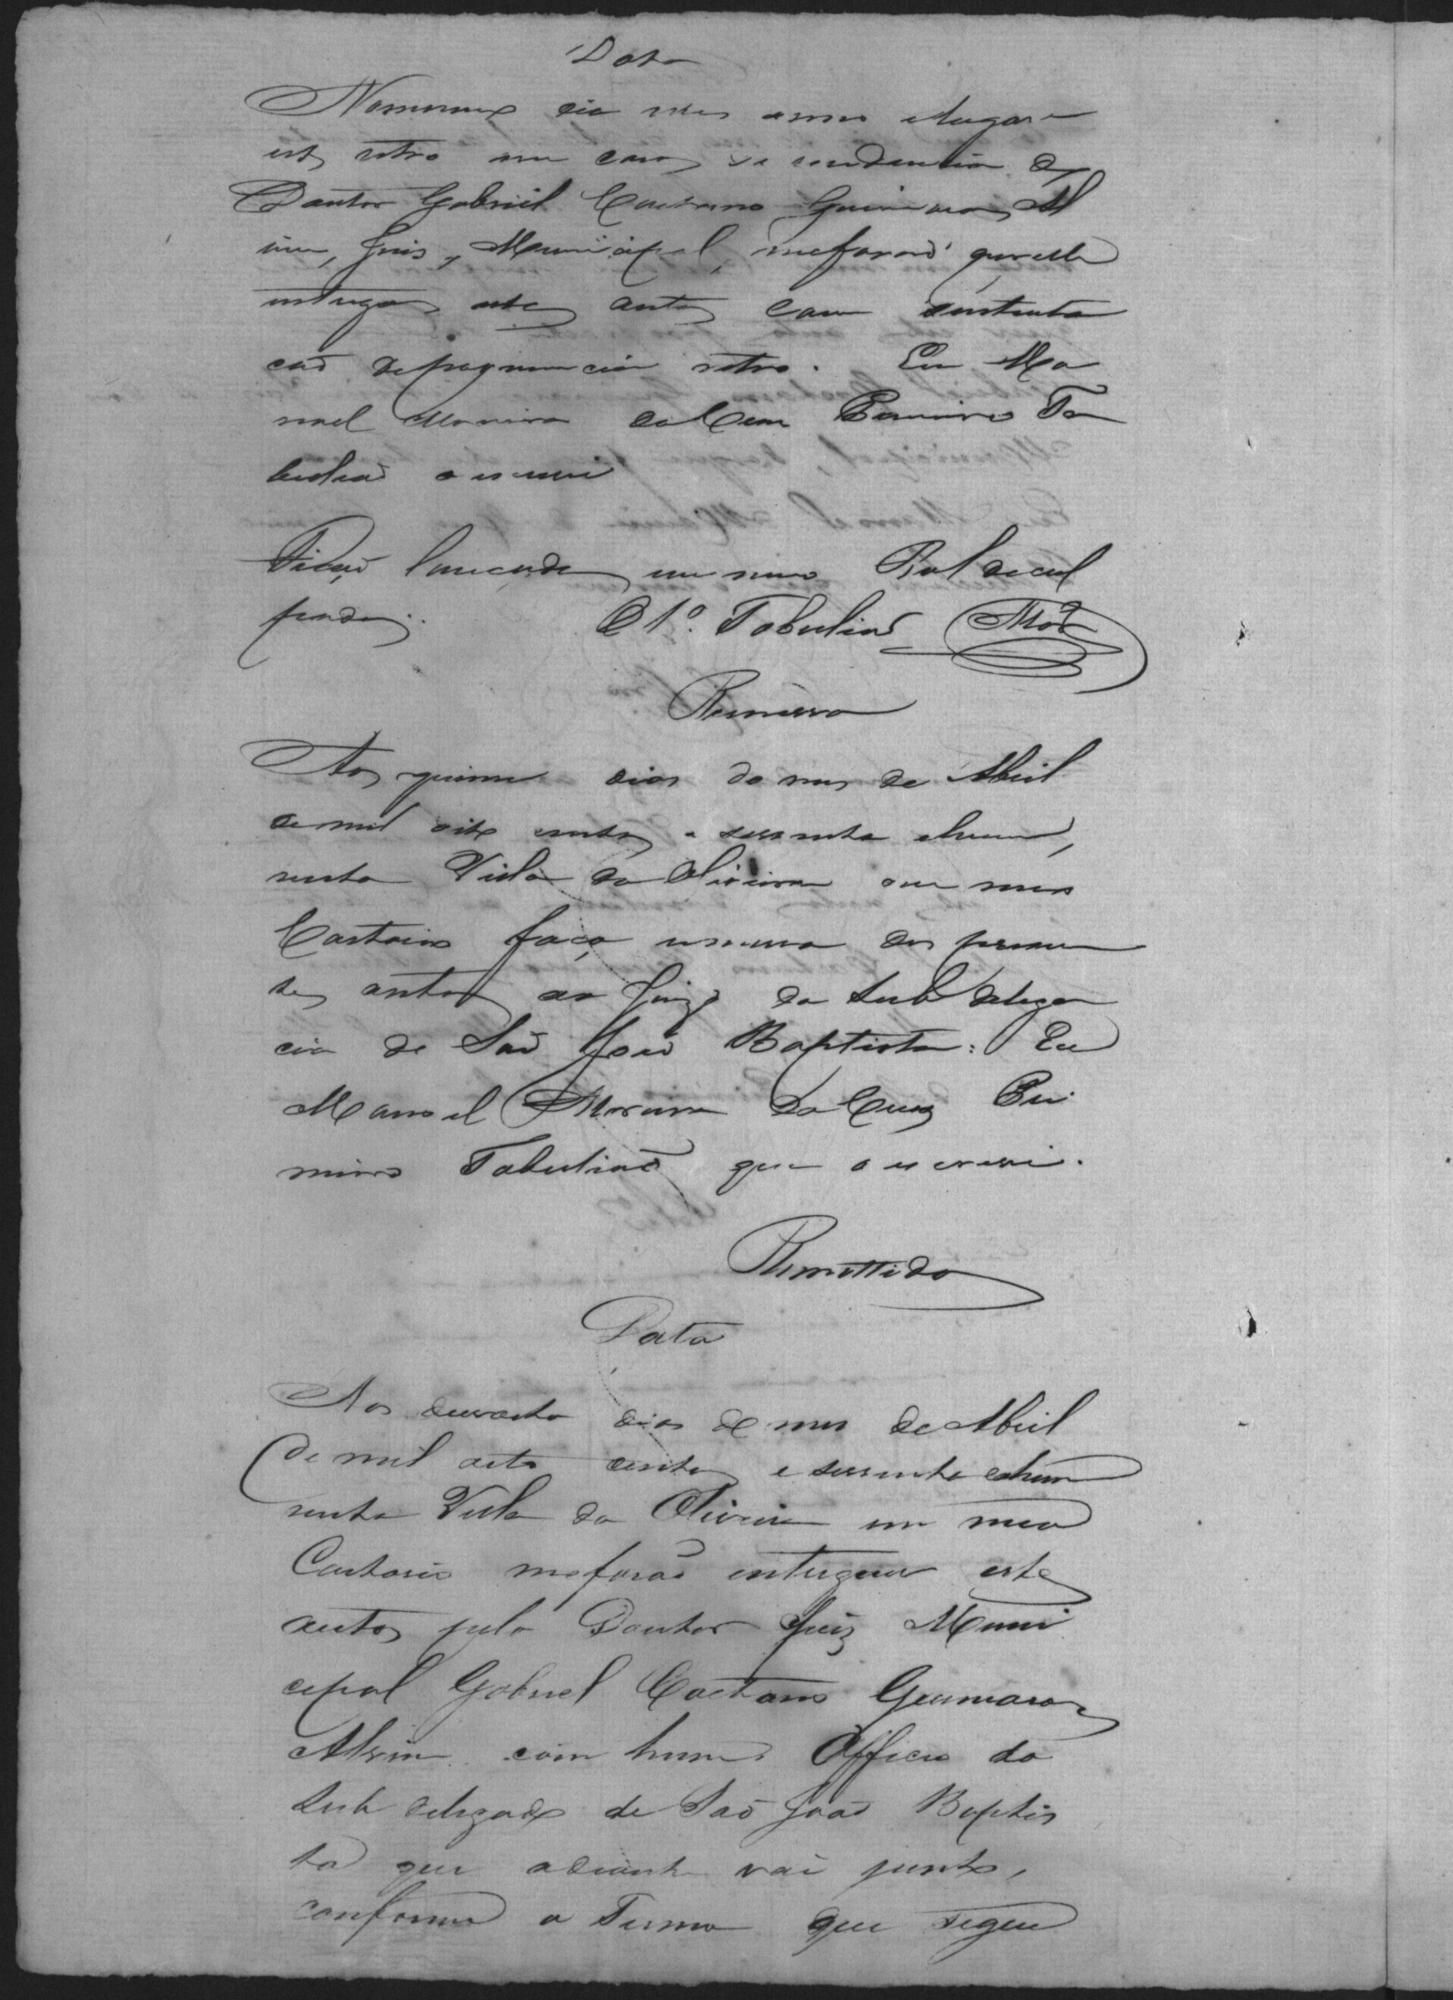 Data
No mesmo dia mes anno e lugar
retro em casa de residencia do
Doutor Gabriel Caetano Guimarães Al
vim, Juis, Municipal, me forão por elle
entregues estes autos com a sustenta
ção de pronuncia retro. Eu Ma
noel Moreira da Cruz Primeiro Ta
belião o escrevi
Ficão lançados em meu Rol de cul
pados. O 1º Tabelião
Remessa
Aos quinse dias do mes de Abril
de mil oito centos e sessenta e hum,
nesta Villa da Oliveira em meu
Cartorio faço remessa dos presen
tes autos ao Juizo da Subdelega
cia de São João Baptista: Eu
Manoel Moreira da Cruz Pri
meiro Tabelião que o escrevi.
Remettido
Data
Aos dias do mes de Abril
de mil oito centos e sessenta e hum
nesta Villa da Oliveira em meu
Cartorio me forão entregues estes
autos pelo Doutor Juiz Muni
cipal Gabriel Caetano Guimaraes
Alvim com hum Officio do
Subdelegado de São João Baptis
ta que adiante vai junto,
conforme o Termo que segue